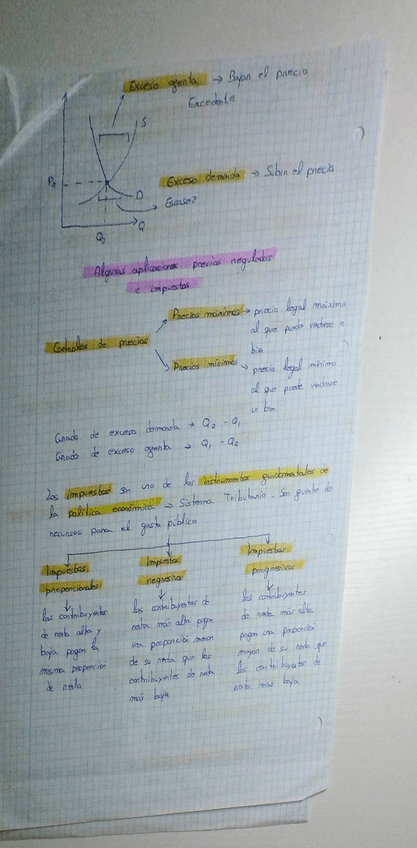 Exceso oferta → Bajan el precio
Excedente
S
P₀
Exceso demanda → Suben el precio
D
Escasez
Q
Q₀
Algunas aplicaciones precios regulados
e impuestos
Controles de precios
Precios máximos → precio legal máximo
al que puede venderse un
bien
Precios mínimos → precio legal mínimo
al que puede venderse
un bien
Grado de exceso demanda → Q₂ - Q₁
Grado de exceso oferta → Q₁ - Q₂
Los impuestos son uno de los instrumentos fundamentales de
la política económica → Sistema Tributario. Son fuente de
recursos para el gasto público
Impuestos
proporcionales
los contribuyentes
de renta alta y
baja pagan la
misma proporción
de renta
Impuestos
regresivos
los contribuyentes de
renta más alta pagan
una proporción menor
de su renta que los
contribuyentes de renta
más baja
Impuestos
progresivos
los contribuyentes
de renta más alta
pagan una proporción
mayor de su renta que
los contribuyentes de
renta más baja